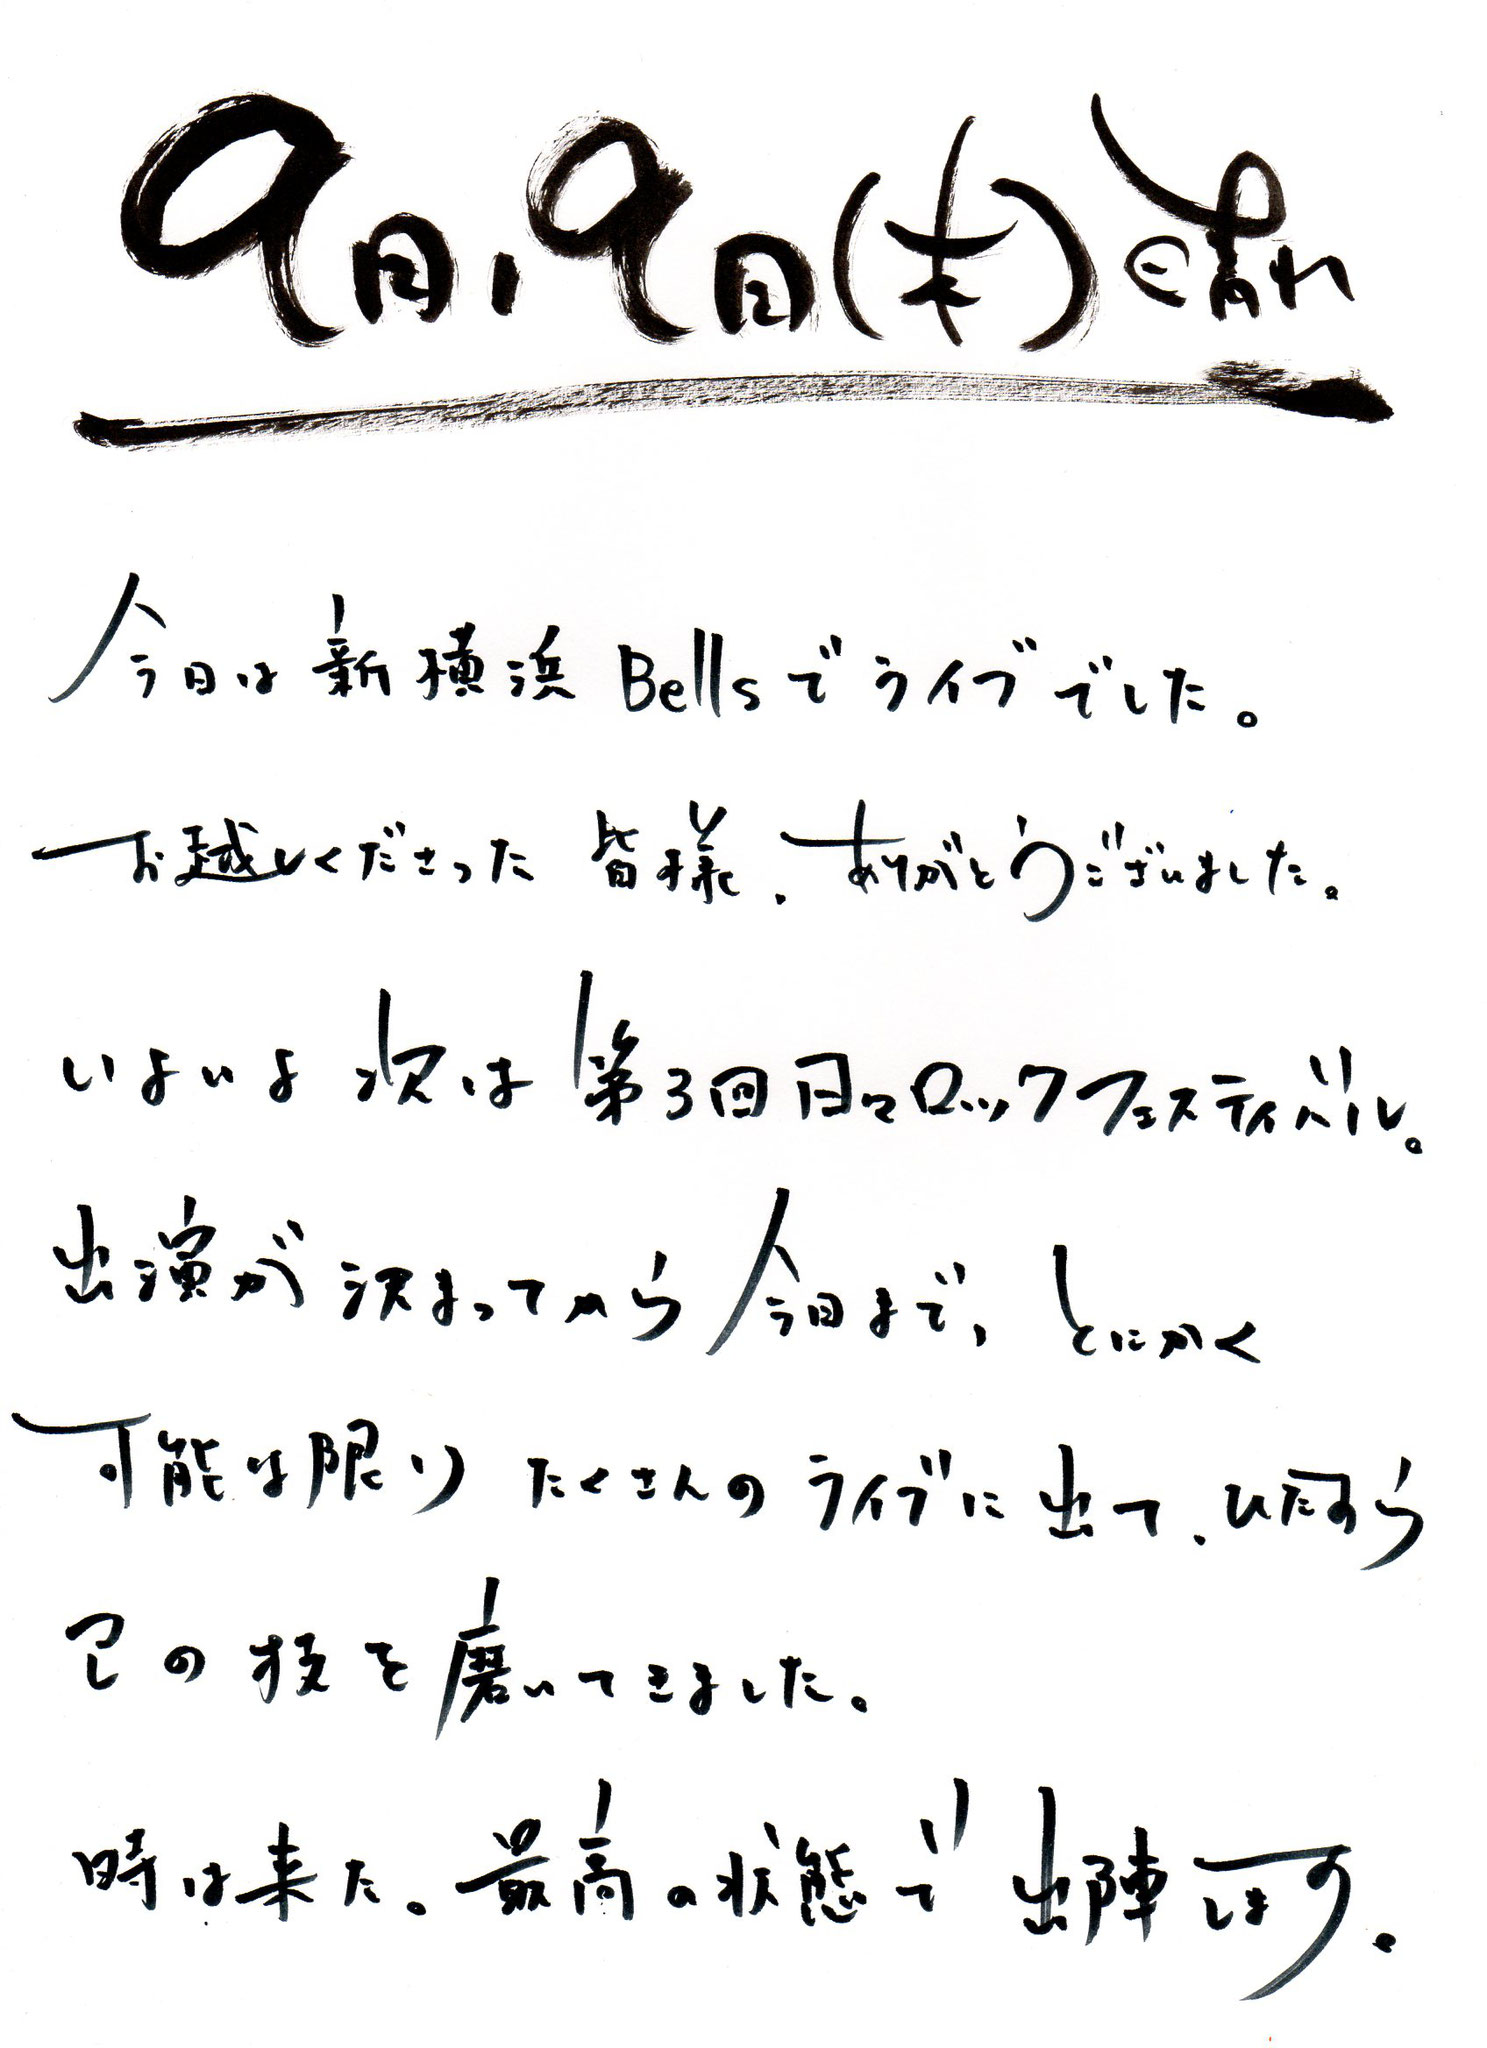 9月19日(木) 晴れ
今日は新横浜Bellsでライブでした。
お越しくださった皆様、ありがとうございました。
いよいよ次は第3回日々ロックフェスティバル。
出演が決まってから今日まで、とにかく
可能な限りたくさんのライブに出て、ひたすら
己の技を磨いてきました。
時は来た。最高の状態で出陣します。